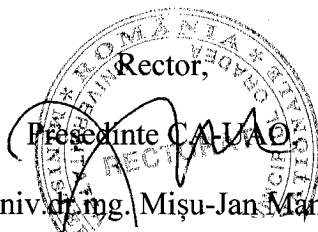 Rector,
Președinte CA-UAO
niv.dr.ing. Mișu-Jan Man
ROMÂNIA
RECTOR